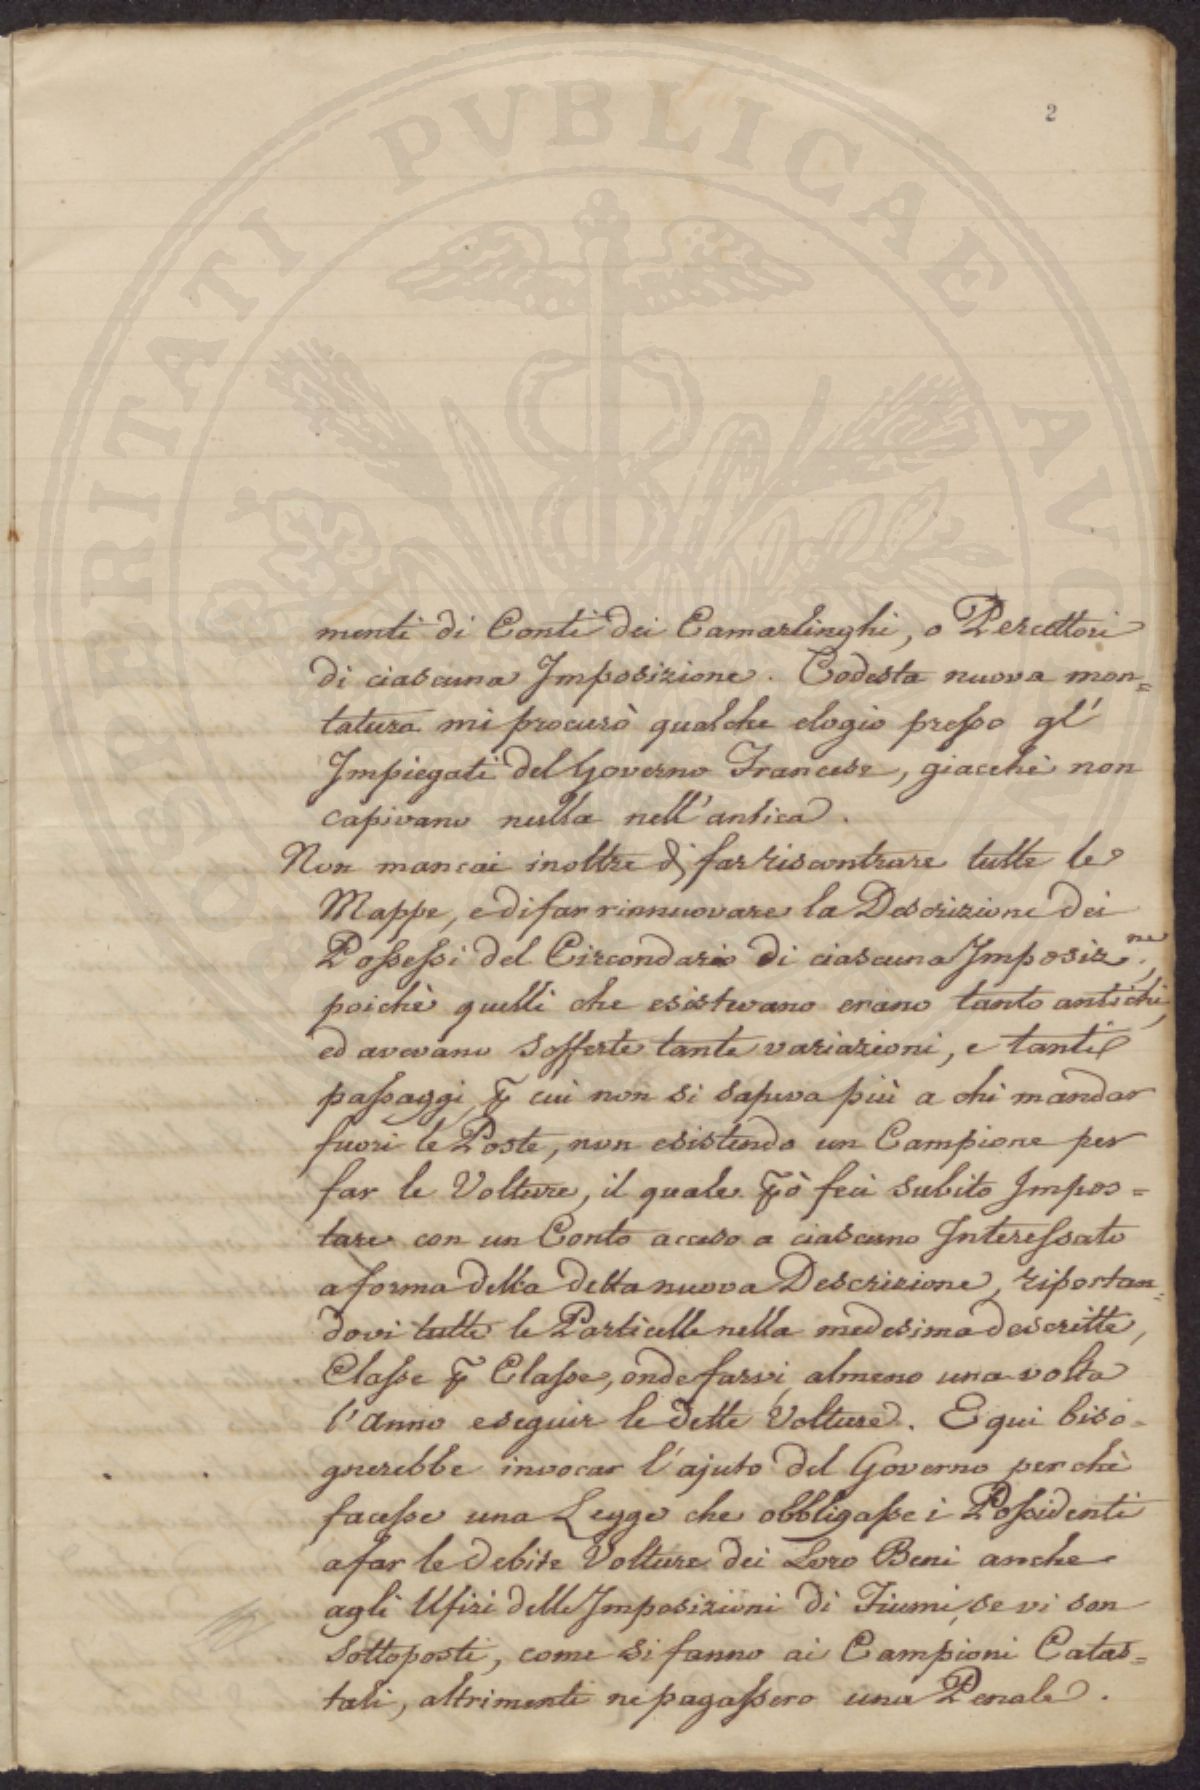 PROSPERITATI PVBLICAE AVGENDAE
2
menti di Conti dei Camarlinghi, o Percettori
di ciascuna Imposizione. Codesta nuova mon=
tatura mi procurò qualche elogio presso gl'
Impiegati del Governo Francese, giacchè non
capivano nulla nell'antica.
Non mancai inoltre di far riscontrare tutte le
Mappe, e di far rinnuovare la Descrizione dei
Possessi del Circondario di ciascuna Imposiz.ne,
poichè quelli che esistevano erano tanto antichi,
ed avevano sofferte tante variazioni, e tanti
passaggi, p cui non si sapeva più a chi mandar
fuori le Poste, non esistendo un Campione per
far le Volture, il quale pò feci subito Impos=
tare con un Conto acceso a ciascuno Interessato
a forma della detta nuova Descrizione, riportan=
dovi tutte le Particelle nella medesima descritte,
Classe p Classe, onde farvi, almeno una volta
l'Anno eseguir le dette Volture. E qui biso=
gnerebbe invocar l'ajuto del Governo perchè
facesse una Legge che obbligasse i Possidenti
a far le debite Volture dei Loro Beni anche
agli Ufizi delle Imposizioni di Fiumi, se vi son
sottoposti, come si fanno ai Campioni Catas=
tali, altrimenti ne pagassero una Penale.